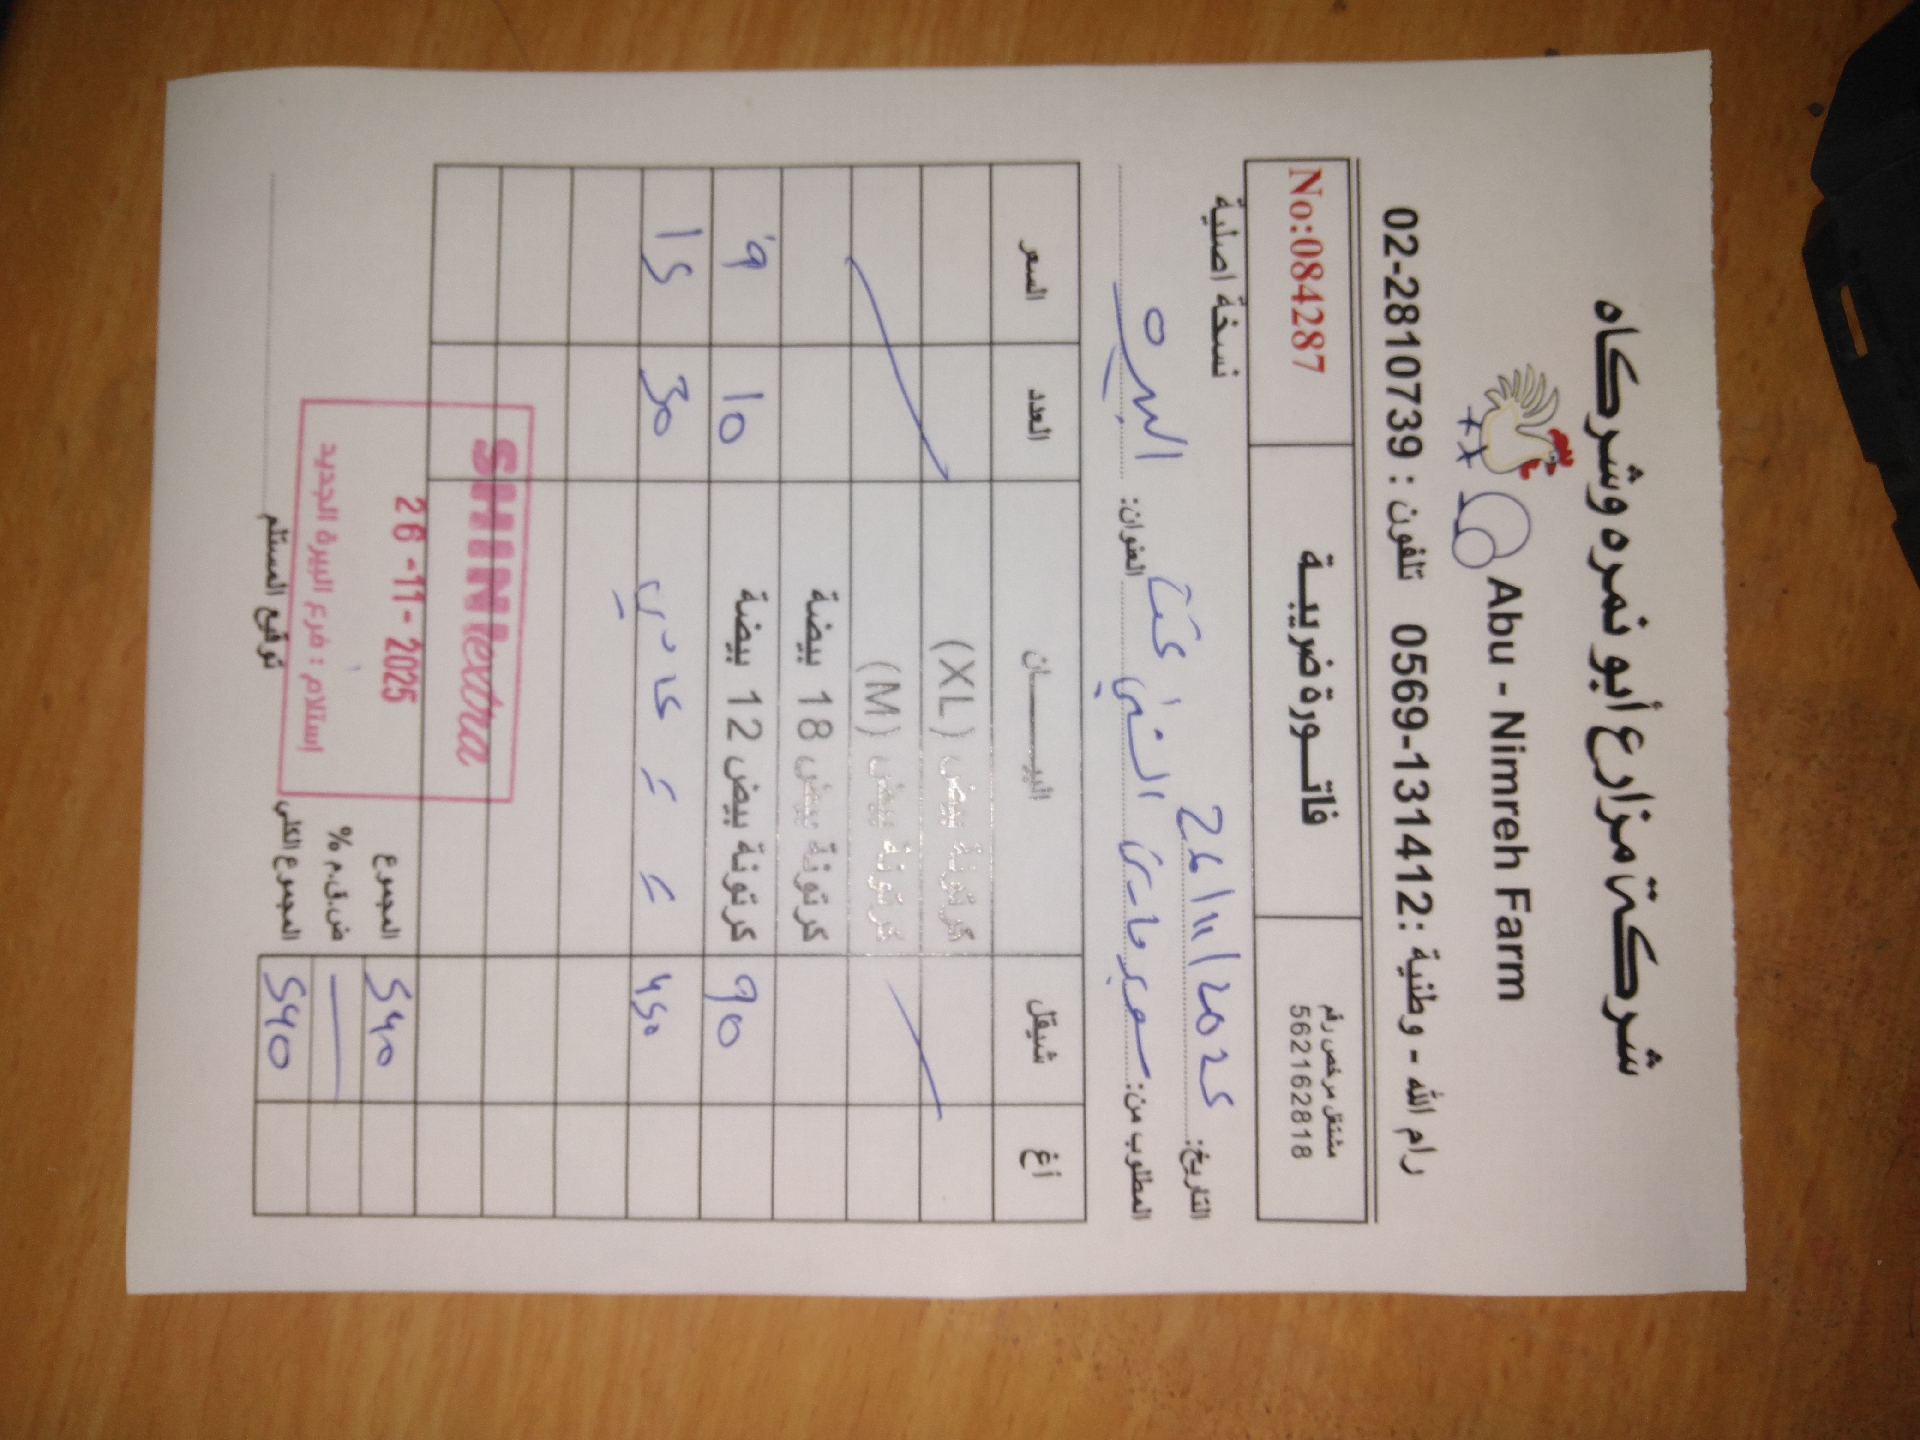 شركة مزارع أبو نمره وشركاه
Abu - Nimreh Farm
رام الله - وطنية : 0569-131412 تلفون : 02-2810739
مشتغل مرخص رقم
562162818
فاتـورة ضريبـة
No:084287
التاريخ: 26/11/2025
نسخة اصلية
المطلوب من: الشني العنوان: البيره
أغ شيقل البيـــــان العدد السعر
كرتونة بيض (XL)
كرتونة بيض (M)
كرتونة بيض 18 بيضة
90 كرتونة بيض 12 بيضة 10 9
450 = = 30 15
SHINI extra
المجموع 540
26-11-2025
ض.ق.م %
إستلام : فرع البيرة الجديد
المجموع الكلي 540
توقيع المستلم